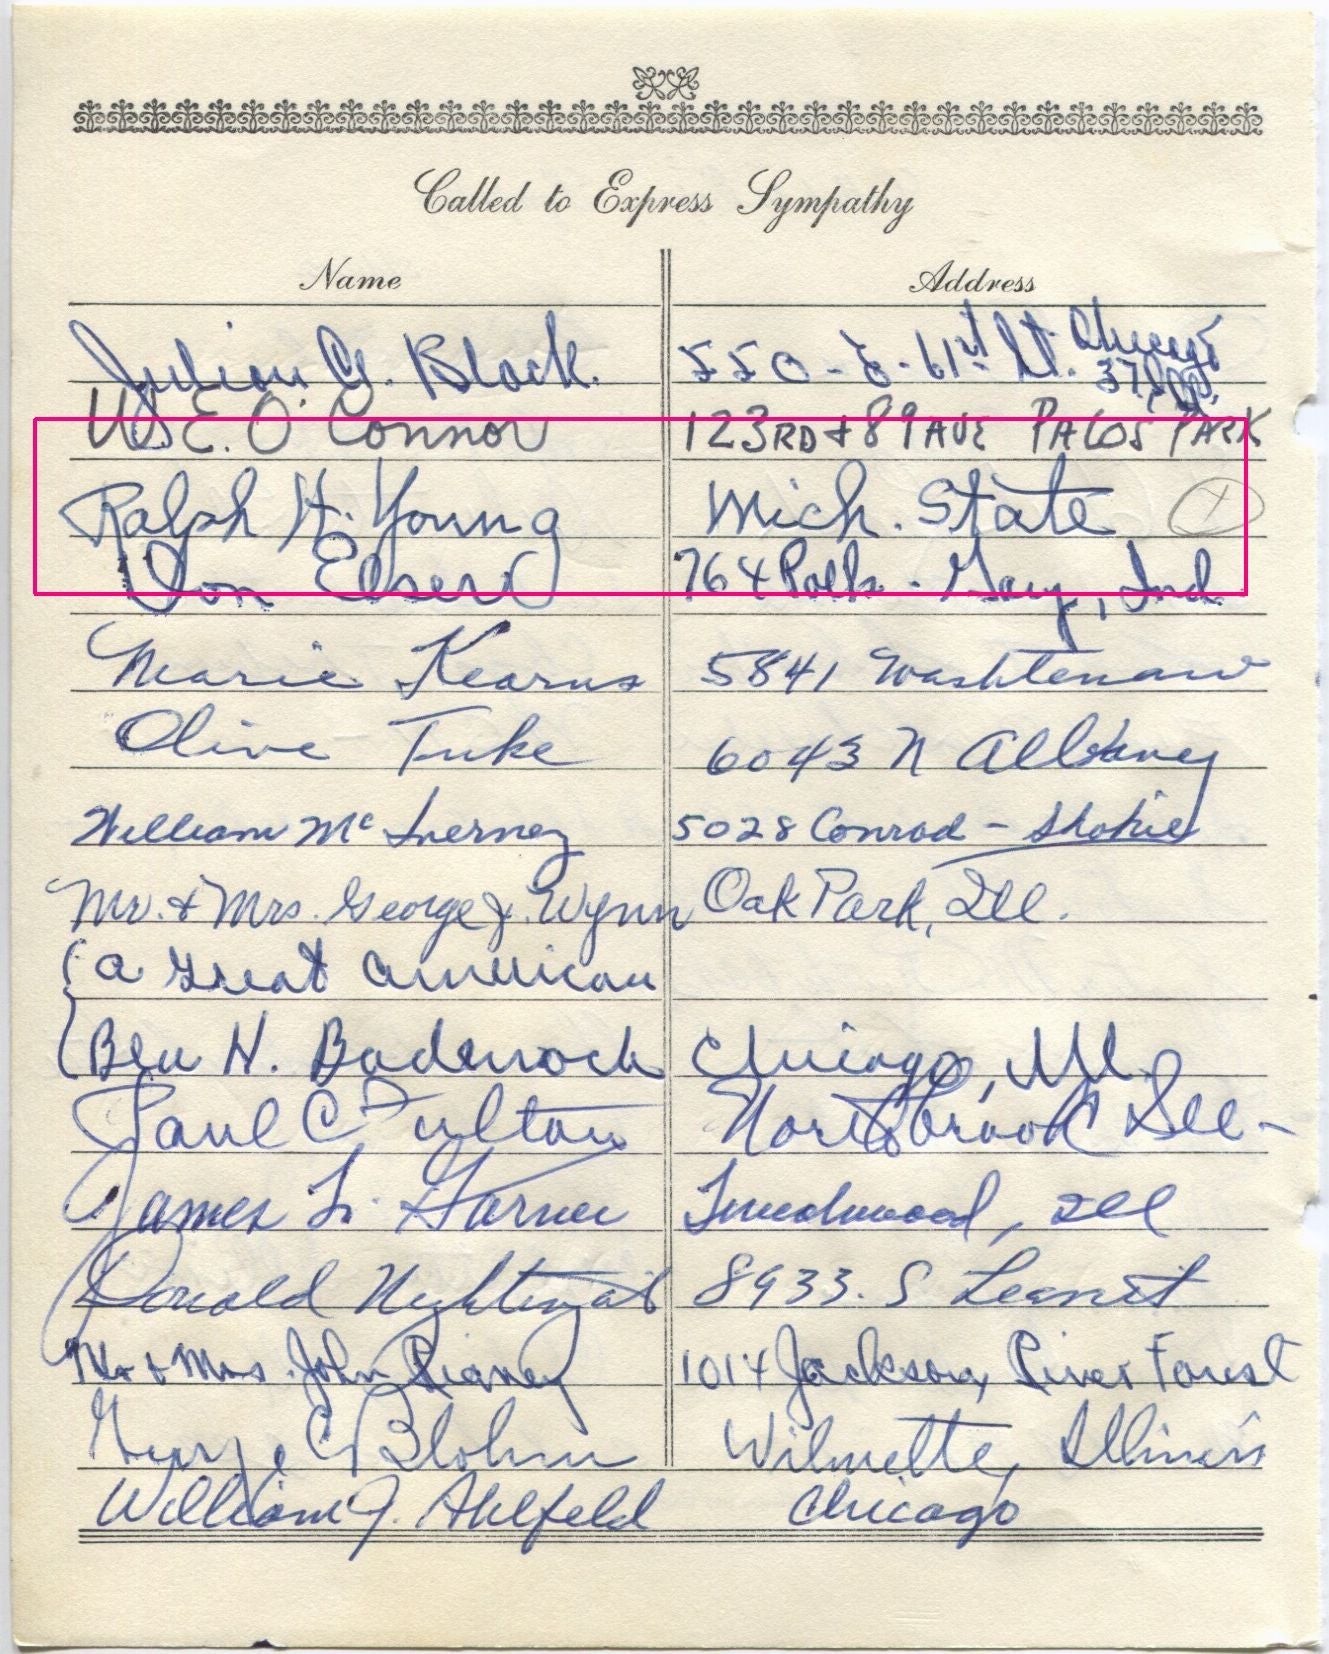 Called to Express Sympathy
Name Address
Julian G. Black. 550 - E - 61st St. Chicago 37,
W E. O'Connor 123RD + 89 AVE PALOS PARK
Ralph H. Young Mich. State
Von Elsero 764 Polk - Gary, Ind.
Marie Kearns 5841 Washtenaw
Olive Tuke 6043 N Albany
William McInerney 5028 Conrad - Skokie
Mr. & Mrs. George J. Wynn Oak Park, Ill.
a Great American
Ben H. Badenoch Chicago, Ill.
Paul C Fulton Northbrook Ill -
James L. Garner Ill
Donald Nightingale 8933. S
Mr & Mrs. John Rigney 1014 Jackson, River Forest
George C Blohm Wilmette, Illinois
William J. Ahlfeld Chicago